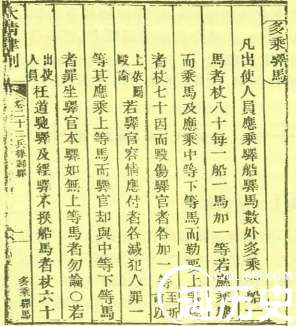 多乘驛馬
凡出使人員應乘驛船驛馬數外多乘一船
馬者杖八十每一船一馬加一等若應乘驢
而乘馬及應乘中等下等馬而勒要上等馬
者杖七十因而毆傷驛官者各加一等至折以
上依鬬毆論若驛官容情應付者各減犯人罪一
等其應乘上等馬而驛官却與中等下等馬
者罪坐驛官本驛如無上等馬者勿論○若
出使人員枉道馳驛及經驛不換船馬者杖六十
大清律例 卷二十二兵律郵驛 一 多乘驛馬
历史